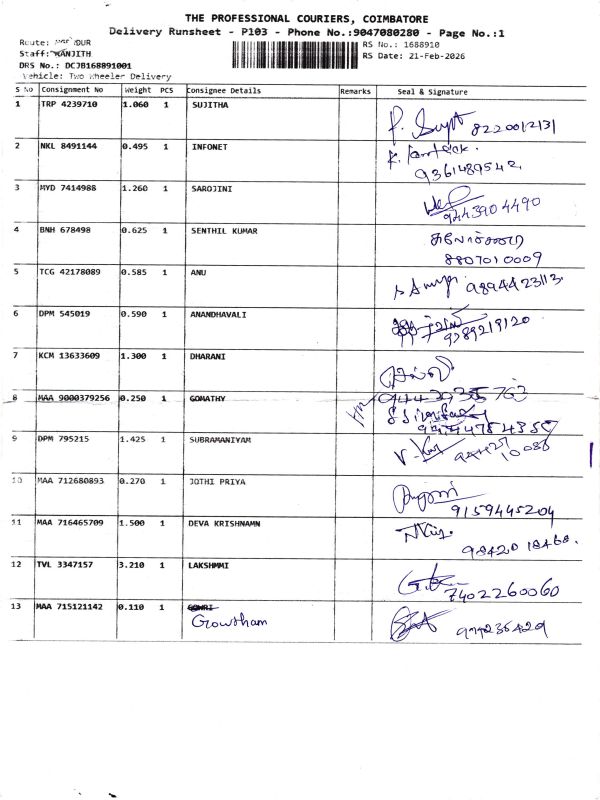 THE PROFESSIONAL COURIERS, COIMBATORE
Delivery Runsheet - P103 - Phone No.:9047080280 - Page No.:1
Route:
Staff: RANJITH
DRS No.: DCJB168891001
Vehicle: Two Wheeler Delivery
RS No.: 1688910
RS Date: 21-Feb-2026
S No Consignment No Weight PCS Consignee Details Remarks Seal & Signature
1 TRP 4239710 1.060 1 SUJITHA
8220012131
2 NKL 8491144 0.495 1 INFONET
9361489542
3 MYD 7414988 1.260 1 SAROJINI
9443904490
4 BNH 678498 0.625 1 SENTHIL KUMAR
சுலோச்சனா
8807010009
5 TCG 42178089 0.585 1 ANU
9894423113
6 DPM 545019 0.590 1 ANANDHAVALI
9789219120
7 KCM 13633609 1.300 1 DHARANI
8 MAA 9000379256 0.250 1 GOMATHY
9 DPM 795215 1.425 1 SUBRAMANIYAM
10 MAA 712680893 0.270 1 JOTHI PRIYA
9159445204
11 MAA 716465709 1.500 1 DEVA KRISHNAMN
98420 18468.
12 TVL 3347157 3.210 1 LAKSHMMI
7402260060
13 MAA 715121142 0.110 1 GOWRI
Growtham